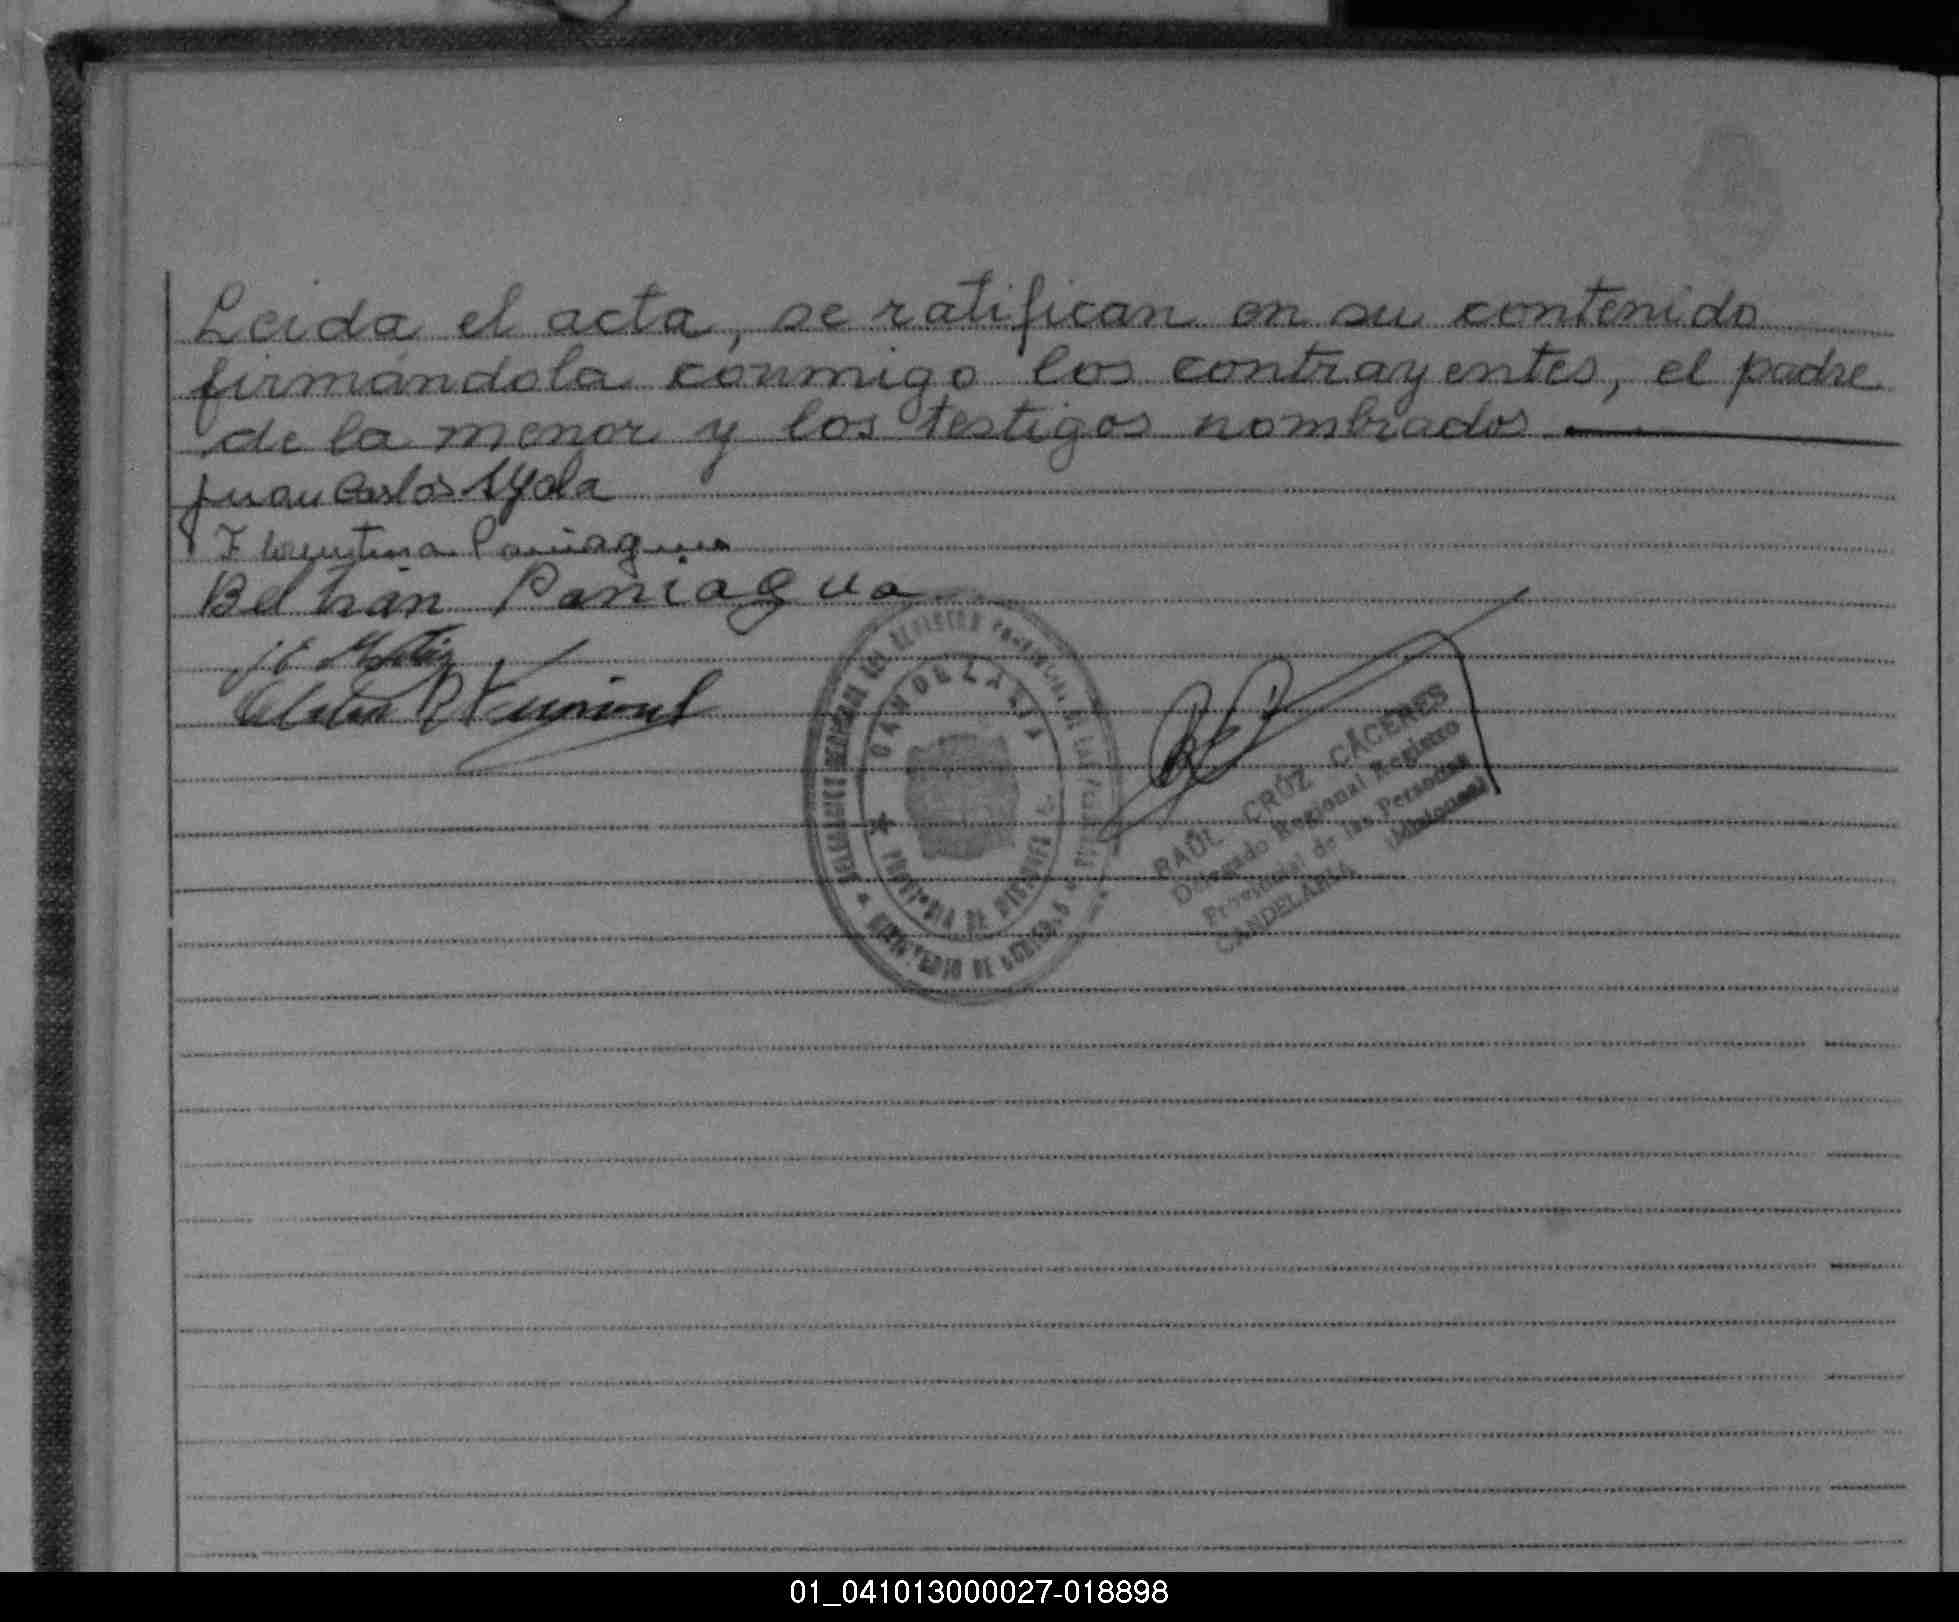 Leida el acta, se ratifican en su contenido
firmándola conmigo los contrayentes, el padre
de la menor y los testigos nombrados
Juan Carlos
Florentina Paniagua
Beltrán Paniagua
CANDELARIA
PROVINCIA DE MISIONES
MINISTERIO DE GOBIERNO
RAÚL CRÚZ CÁCERES
Delegado Regional Registro
Provincial de las Personas
CANDELARIA (Misiones)
01_041013000027-018898